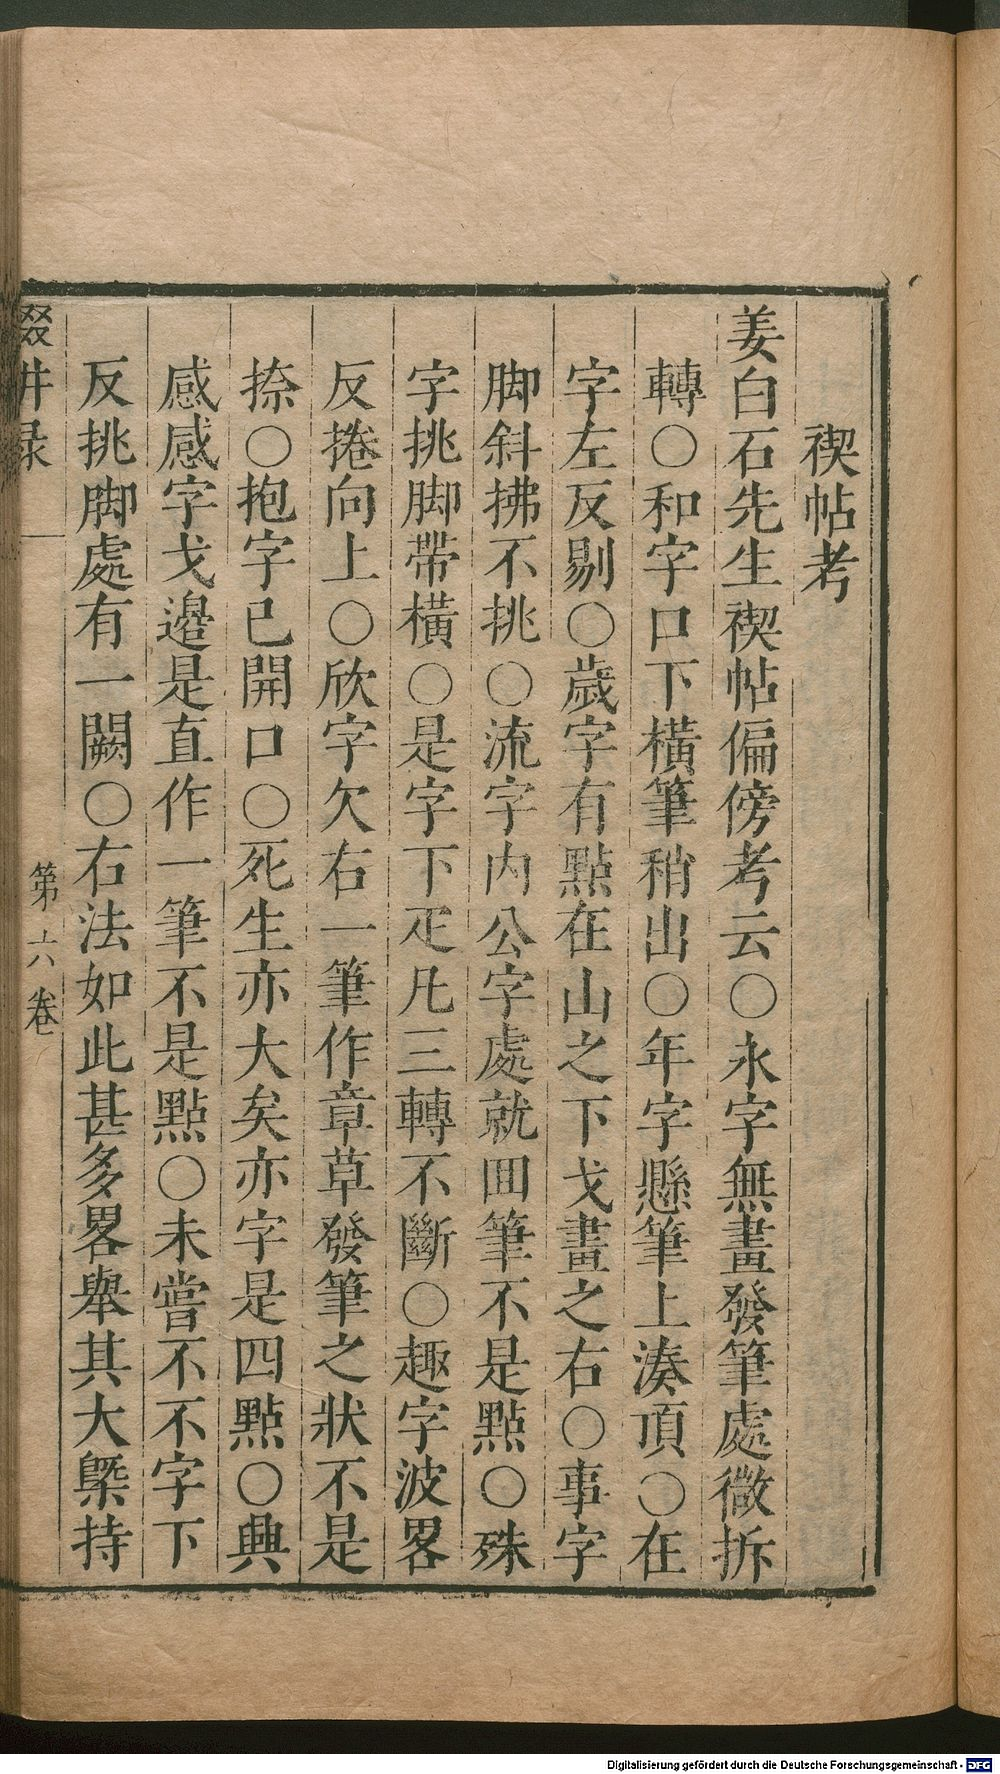 禊帖考
姜白石先生禊帖偏傍考云○永字無畫發筆處微拆
轉○和字口下橫筆稍出○年字懸筆上湊頂○在
字左反剔○歲字有點在山之下戈畫之右○事字
脚斜拂不挑○流字内公字處就囬筆不是點○殊
字挑脚帶橫○是字下疋凡三轉不斷○趣字波畧
反捲向上○欣字欠右一筆作章草發筆之狀不是
捺○抱字已開口○死生亦大矣亦字是四點○興
感感字戈邉是直作一筆不是點○未嘗不不字下
反挑脚處有一闕○右法如此甚多畧舉其大槩持
輟畊录
第六卷
Digitalisierung gefördert durch die Deutsche Forschungsgemeinschaft - DFG